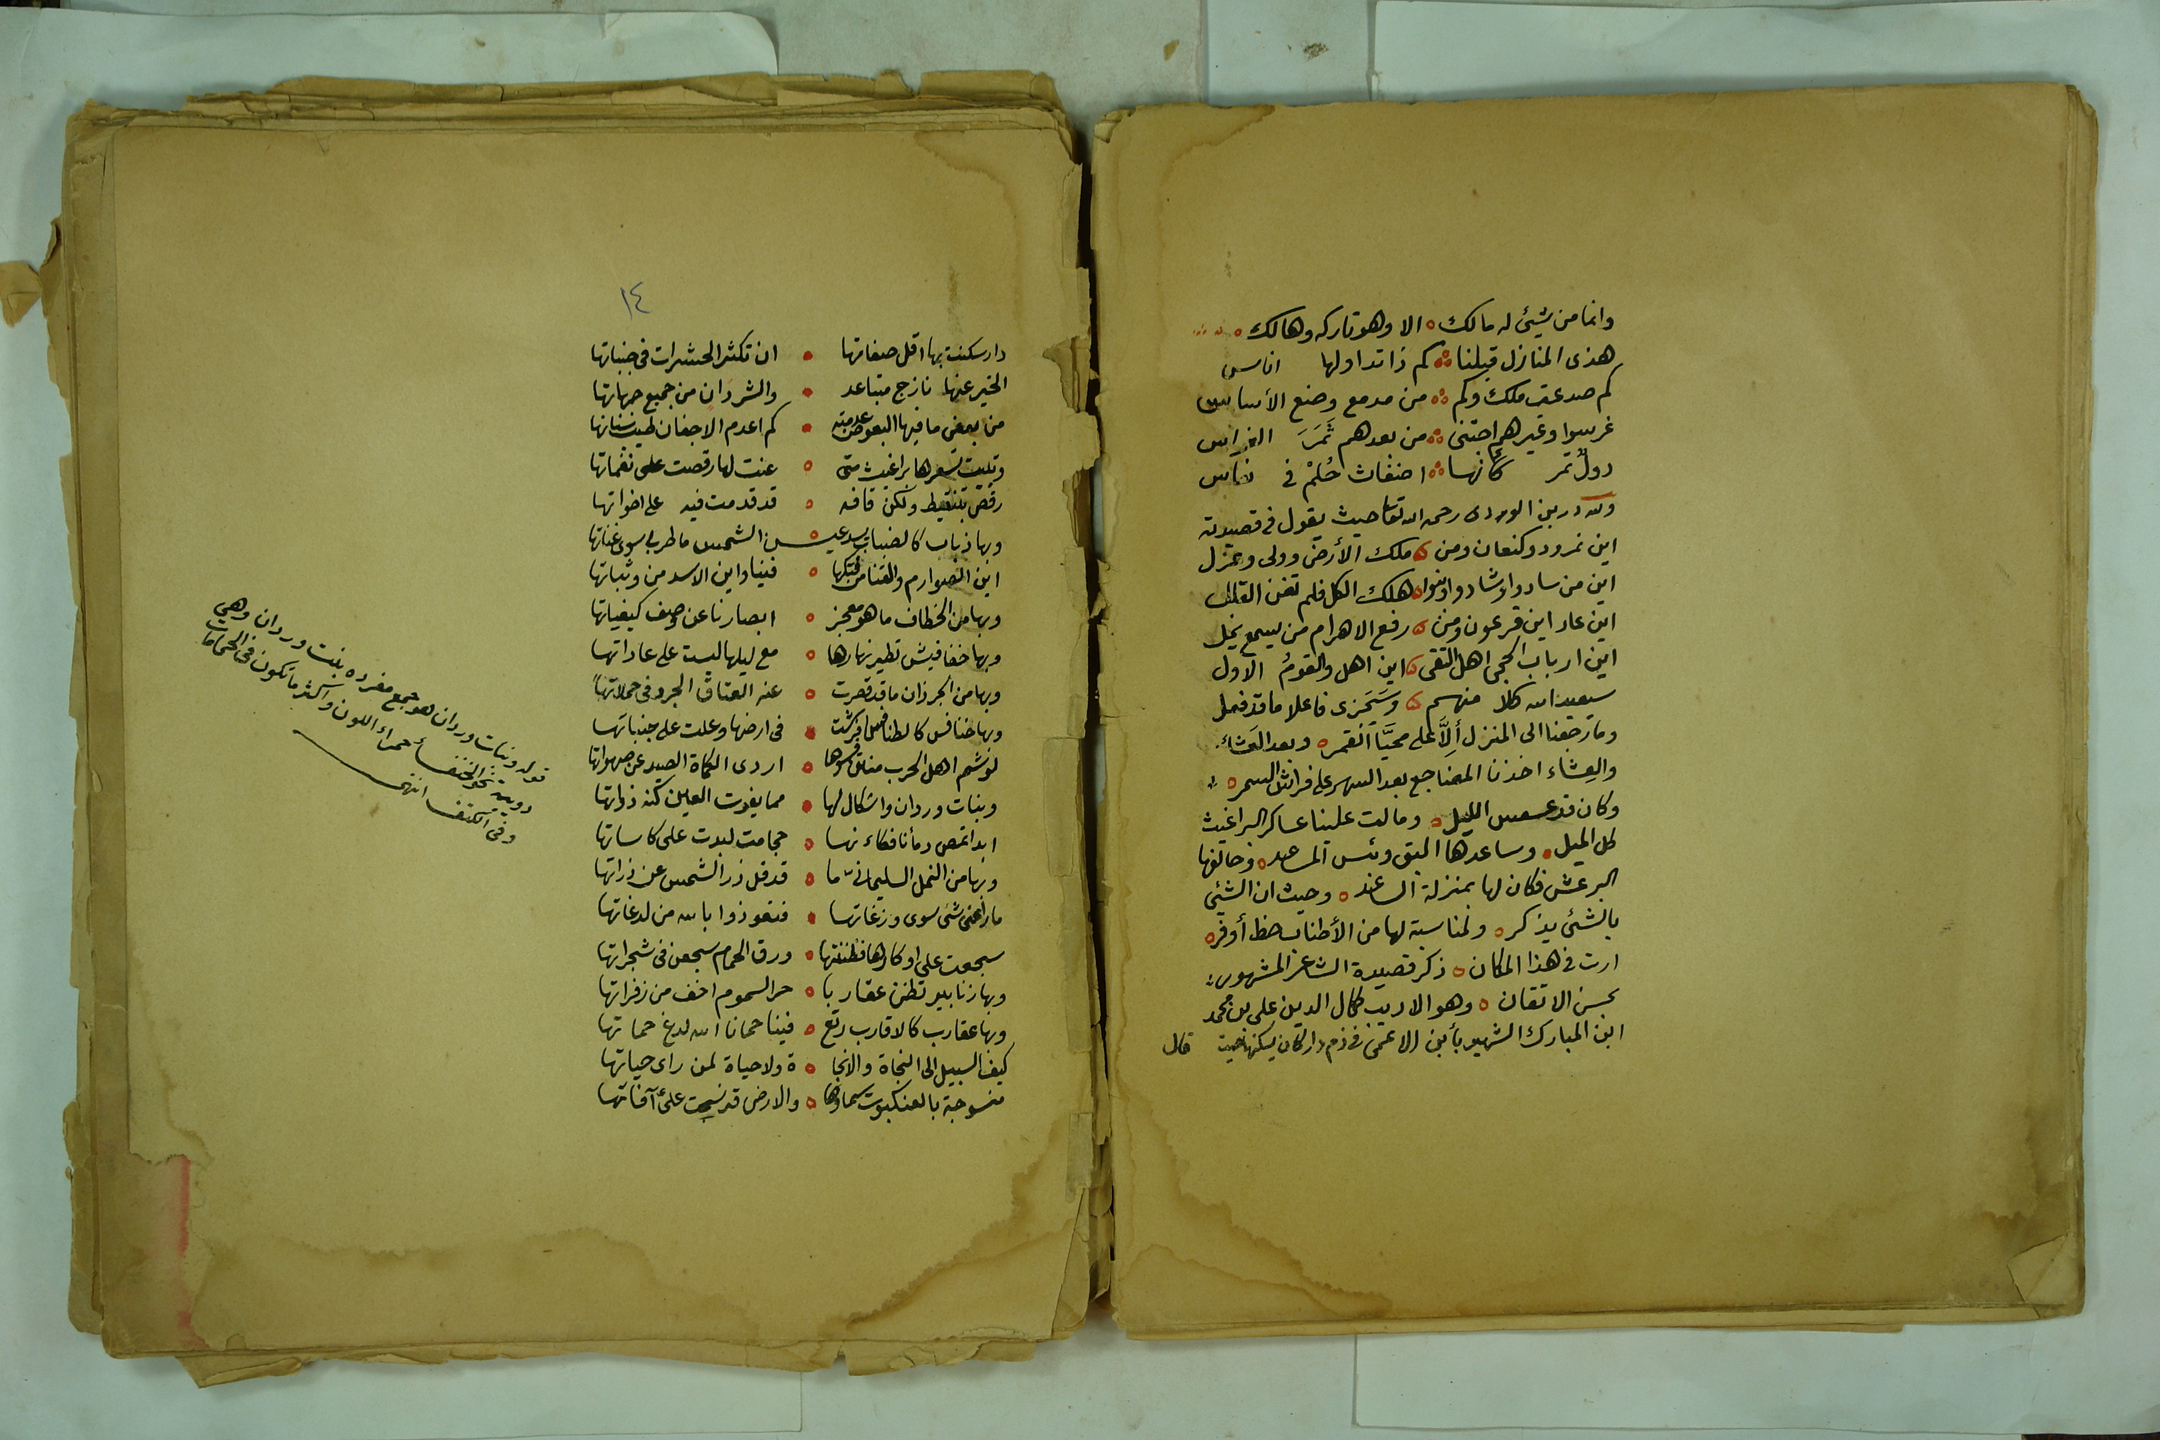 وانما من شيئ له مالك ٥ الا وهو تاركه وهالك ٥
هذى المنازل قبلنا كم ذا تداولها اناس
كم صدعت ملك وكم من مدمع وضع الأساس
غرسوا وغيرهم اجتنى من بعدهم ثَمَرَ الغراس
دولٌ تمر كأنها اضغاث حُلمْ فى نعاس
ولله در بن الوردى رحمه الله تعا حيث يقول فى قصيدته
اين نمرود وكنعان ومن ملك الأرض وولى وعزل
اين من سادوا وشادوا وبنوا هلك الكل فلم تغن القلل
اين عاد اين فرعون ومن رفع الاهرام من يسمع يخل
اين ارباب الحجى اهل التقى اين اهل والقومُ الاول
سيعيد الله كلا منهم وسَيَجزى فاعلا ما قد فعل
وما رجعنا الى المنزل أَلِاَّ على محيَّا القمر ٥ وبعد العَشاء
والعِشاء اخذنا المضاجع بعد السهر على فراش السمر ٥
وكان قد عسعس الليل ٥ ومالت علينا عساكر البراغيث
كل الميل ٥ وساعدها البق وبئس المساعد ٥ وحالفها
البرعش فكان لها بمنزلة الساعد ٥ وحيث ان الشئي
بالشئي يذكر ٥ ولمناسبة لها من الأطناب حظ أوفر ٥
ارت فى هذا المكان ٥ ذكر قصيدة الشاعر المشهور
بحسن الاتقان ٥ وهو الاديب كمال الدين على بن محمد
ابن المبارك الشهير بأبن الاعمى فى ذم دار كان يسكنها حيث قال
١٤
دار سكنت بها اقل صفاتها ان تكثر الحشرات فى جنباتها
الخير عنها نازح متباعد والشر دَانٍ من جميع جهاتها
من بعض ما فيها البعوض عدمته كم اعدم الاجفان طيب سناتها
وتبيت تسعرها براغيث متى غنت لها رقصت على نغماتها
رقص بتنقيط ولكن قافه قد قدمت فيه على اخواتها
وبها ذباب كالضباب يسد عيـن الشمس ما طربى سوى غناتها
اين الصوارم والقنا من فتكها فينا واين الاسد من وثباتها
وبها من الخطاف ما هو معجز ابصارنا عن وصف كيفياتها
وبها خفافيش تطير نهارها مع ليلها ليست على عاداتها
وبها من الجرذان ما قد قصرت عنه العتاق الجرد فى حملاتها
وبها خنافس كالطنافس افرشت فى ارضها وعلت على جنباتها
لو شم اهل الحرب منتن فسوها اردى الكماة الصيد عن صهواتها
وبنات وردان واشكال لها مما يفوت العين كنه ذواتها
ابدا تمص دمأنا فكاءنها حجامت لبدت على كاساتها
وبها من النمل السليمانى ما قد قل ذر الشمس عن ذراتها
ما راعنى شئ سوى وزغاتها فتعوذوا بالله من لدغاتها
سجعت على اوكارها فظننتها ورق الحمام سجعن فى شجراتها
وبها زنابير تظن عقاربا حر السموم اخف من زفراتها
وبها عقارب كالاقارب رتع فينا حمانا الله لدغ حماتها
كيف السبيل الى النجاة والانجا ة ولا حياة لمن راى حياتها
منسوجة بالعنكبوت سماؤها والارض قد نسجت على آفاتها
قوله وبنات وردان هو جمع مفرده بنت وردان وهى
دويبة نحو الخنفسأ حمراء اللون واكثر ما تكون فى الحمامات
وفى الكنف انتهى